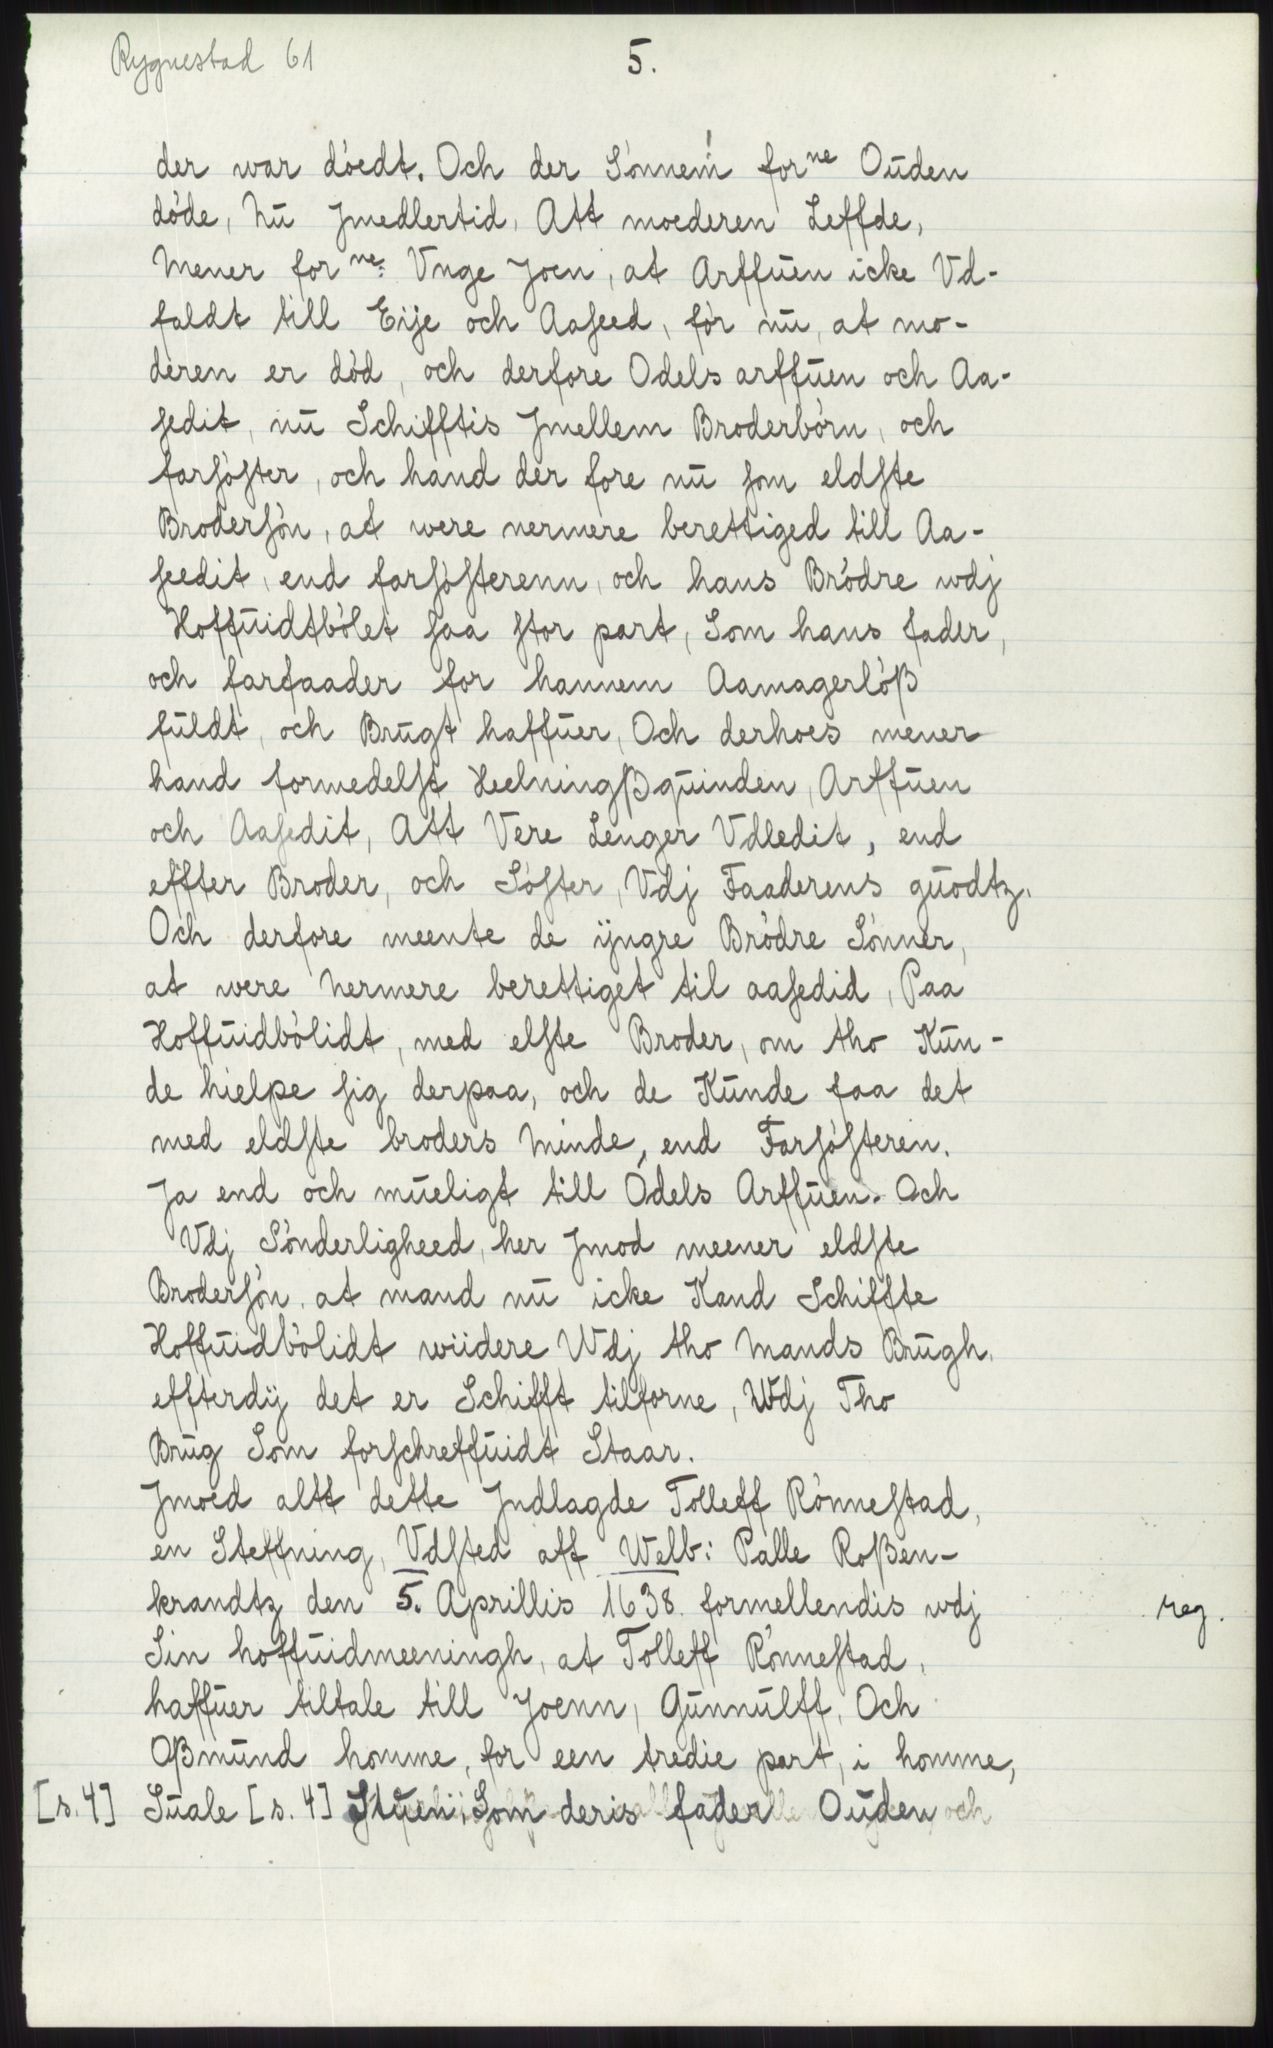 Rygnestad 61
5.
der war dóedt. Och der Sónnem! for<sup>ne</sup> Ouden
dóde, Nu Jmedlertid, Att moederen Leffde,
Mener for<sup>ne</sup>: Vnge Joen, at Arffuen icke Vd-
faldt till Eije och Aaseed, fór nu, at mo-
deren er dód, och derfore Odels arffuen och Aa-
sedit, nu Schifftis Jmellem Broderbórn, och
farsóster, och hand der fore nu som eldste
Brodersón, at were nermere berettiged till Aa-
seedit, end farsósterenn, och hans Bródre wdj
Hoffuidtbólet saa stor part, Som hans fader,
och farfaader for hannem Aamagerlóß
fuldt, och Brugt haffuer, Och derhoes mener
hand formedelst Heelningßquinden, Arffuen
och Aasedit, Att Vere Lenger Vdledit, end
effter Broder, och Sóster, Vdj Faaderens guodtz.
Och derfore meente de ijngre Bródre Sónner,
at were Nermere berettiget til aasedid, Paa
Hoffuidbólidt, med elste Broder, om tho Kun-
de hielpe sig derpaa, och de Kunde faa det
med eldste broders Minde, end Farsósteren.
Ja end och mueligt till Odels Arffuen. Och
Vdj Sónderligheed, her Jmod meener eldste
Brodersón, at mand nu icke Kand Schiffte
Hoffuidbólidt wiidere Wdj tho Mands Brugh,
effterdij det er Schifft tilforne, Wdj Tho
Brug Som forschreffuidt Staar.
Jmoed altt dette Jndlagde Tolleff Rónnestad,
en Steffning, Vdsted aff Welb: Palle Roßen-
krandtz den 5. Aprillis 1638. formellendis wdj
reg.
Sin hoffuidmeeningh, at Tolleff Rónnestad,
haffuer tiltale till Joenn, Gunnulff, Och
Oßmund homme, for een tredie part, i homme,
[s. 4] Suale [s. 4] Stuen, Som deris fader Ouden och